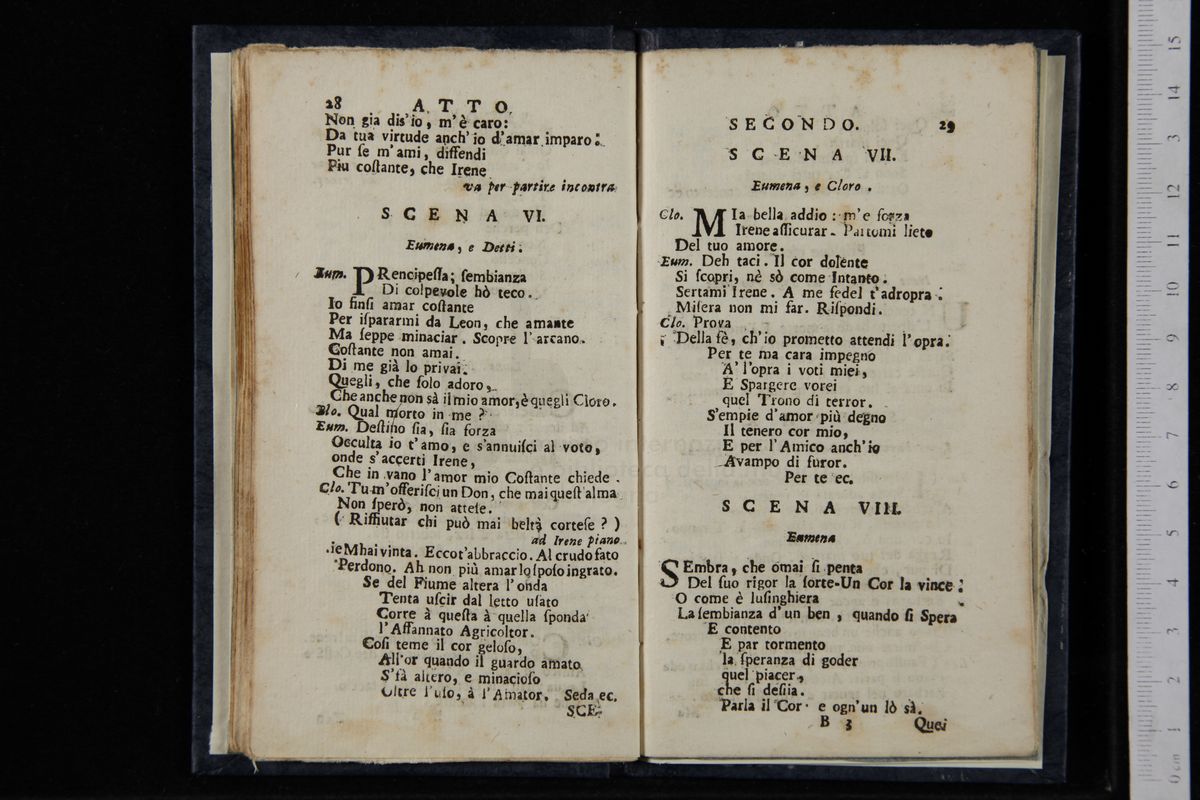 28 ATTO.
Non gia dis'io, m'è caro:
Da tua virtude anch'io d'amar imparo:
Pur ſe m'ami, diffendi
Piu coſtante, che Irene
va per partire incontra
SCENA VI.
Eumena, e Detti.
Eum. PRencipeſſa; ſembianza
Di colpevole hò teco.
Io finſi amar coſtante
Per iſpararmi da Leon, che amante
Ma ſeppe minaciar. Scopre l'arcano.
Coſtante non amai.
Di me già lo privai.
Quegli, che ſolo adoro,
Che anche non sà il mio amor, è quegli Cloro.
Qual morto in me?
Eum. Deſtino ſia, ſia forza
Occulta io t'amo, e s'annuiſci al voto,
onde s'accerti Irene,
Che in vano l'amor mio Coſtante chiede.
Clo. Tu m'offeriſci un Don, che mai queſt'alma
Non ſperò, non atteſe.
( Riffiutar chi può mai beltà corteſe? )
ad Irene piano
Mhai vinta. Eccot'abbraccio. Al crudo fato
Perdono. Ah non più amar lo ſpoſo ingrato.
Se del Fiume altera l'onda
Tenta uſcir dal letto uſato
Corre à queſta à quella ſponda
l'Affannato Agricoltor.
Coſi teme il cor geloſo,
All'or quando il guardo amato
S'fà altero, e minacioſo
Oltre l'uſo, à l'Amator. Seda ec.
SCE-
SECONDO. 29
SCENA VII.
Eumena, e Cloro.
Clo. MIa bella addio: m'e forza
Irene aſſicurar. Partomi lieto
Del tuo amore.
Eum. Deh taci. Il cor dolente
Si ſcopri, nè sò come Intanto.
Sertami Irene. A me fedel t'adropra.
Miſera non mi far. Riſpondi.
Clo. Prova
Della fè, ch'io prometto attendi l'opra.
Per te ma cara impegno
A' l'opra i voti miei,
E Spargere vorei
quel Trono di terror.
S'empie d'amor più degno
Il tenero cor mio,
E per l'Amico anch'io
Avampo di furor.
Per te ec.
SCENA VIII.
Eumena
SEmbra, che omai ſi penta
Del ſuo rigor la ſorte-Un Cor la vince:
O come è luſinghiera
La ſembianza d'un ben, quando ſi Spera
E contento
E par tormento
la ſperanza di goder
quel piacer,
che ſi deſiia.
Parla il Cor e ogn'un lò sà.
B 3 Quei
15
14
13
12
11
10
9
8
7
6
5
4
3
2
1
0 cm